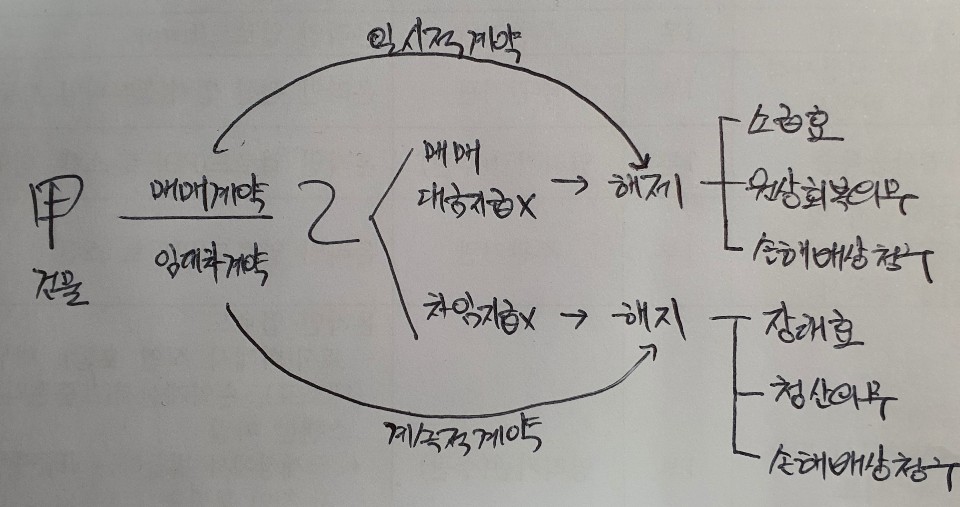 일시적계약
甲
건물
매매계약
임대차계약
乙
매매
대금지급X
→ 해제
소급효
원상회복의무
손해배상청구
차임지급X
→ 해지
장래효
청산의무
손해배상청구
계속적계약